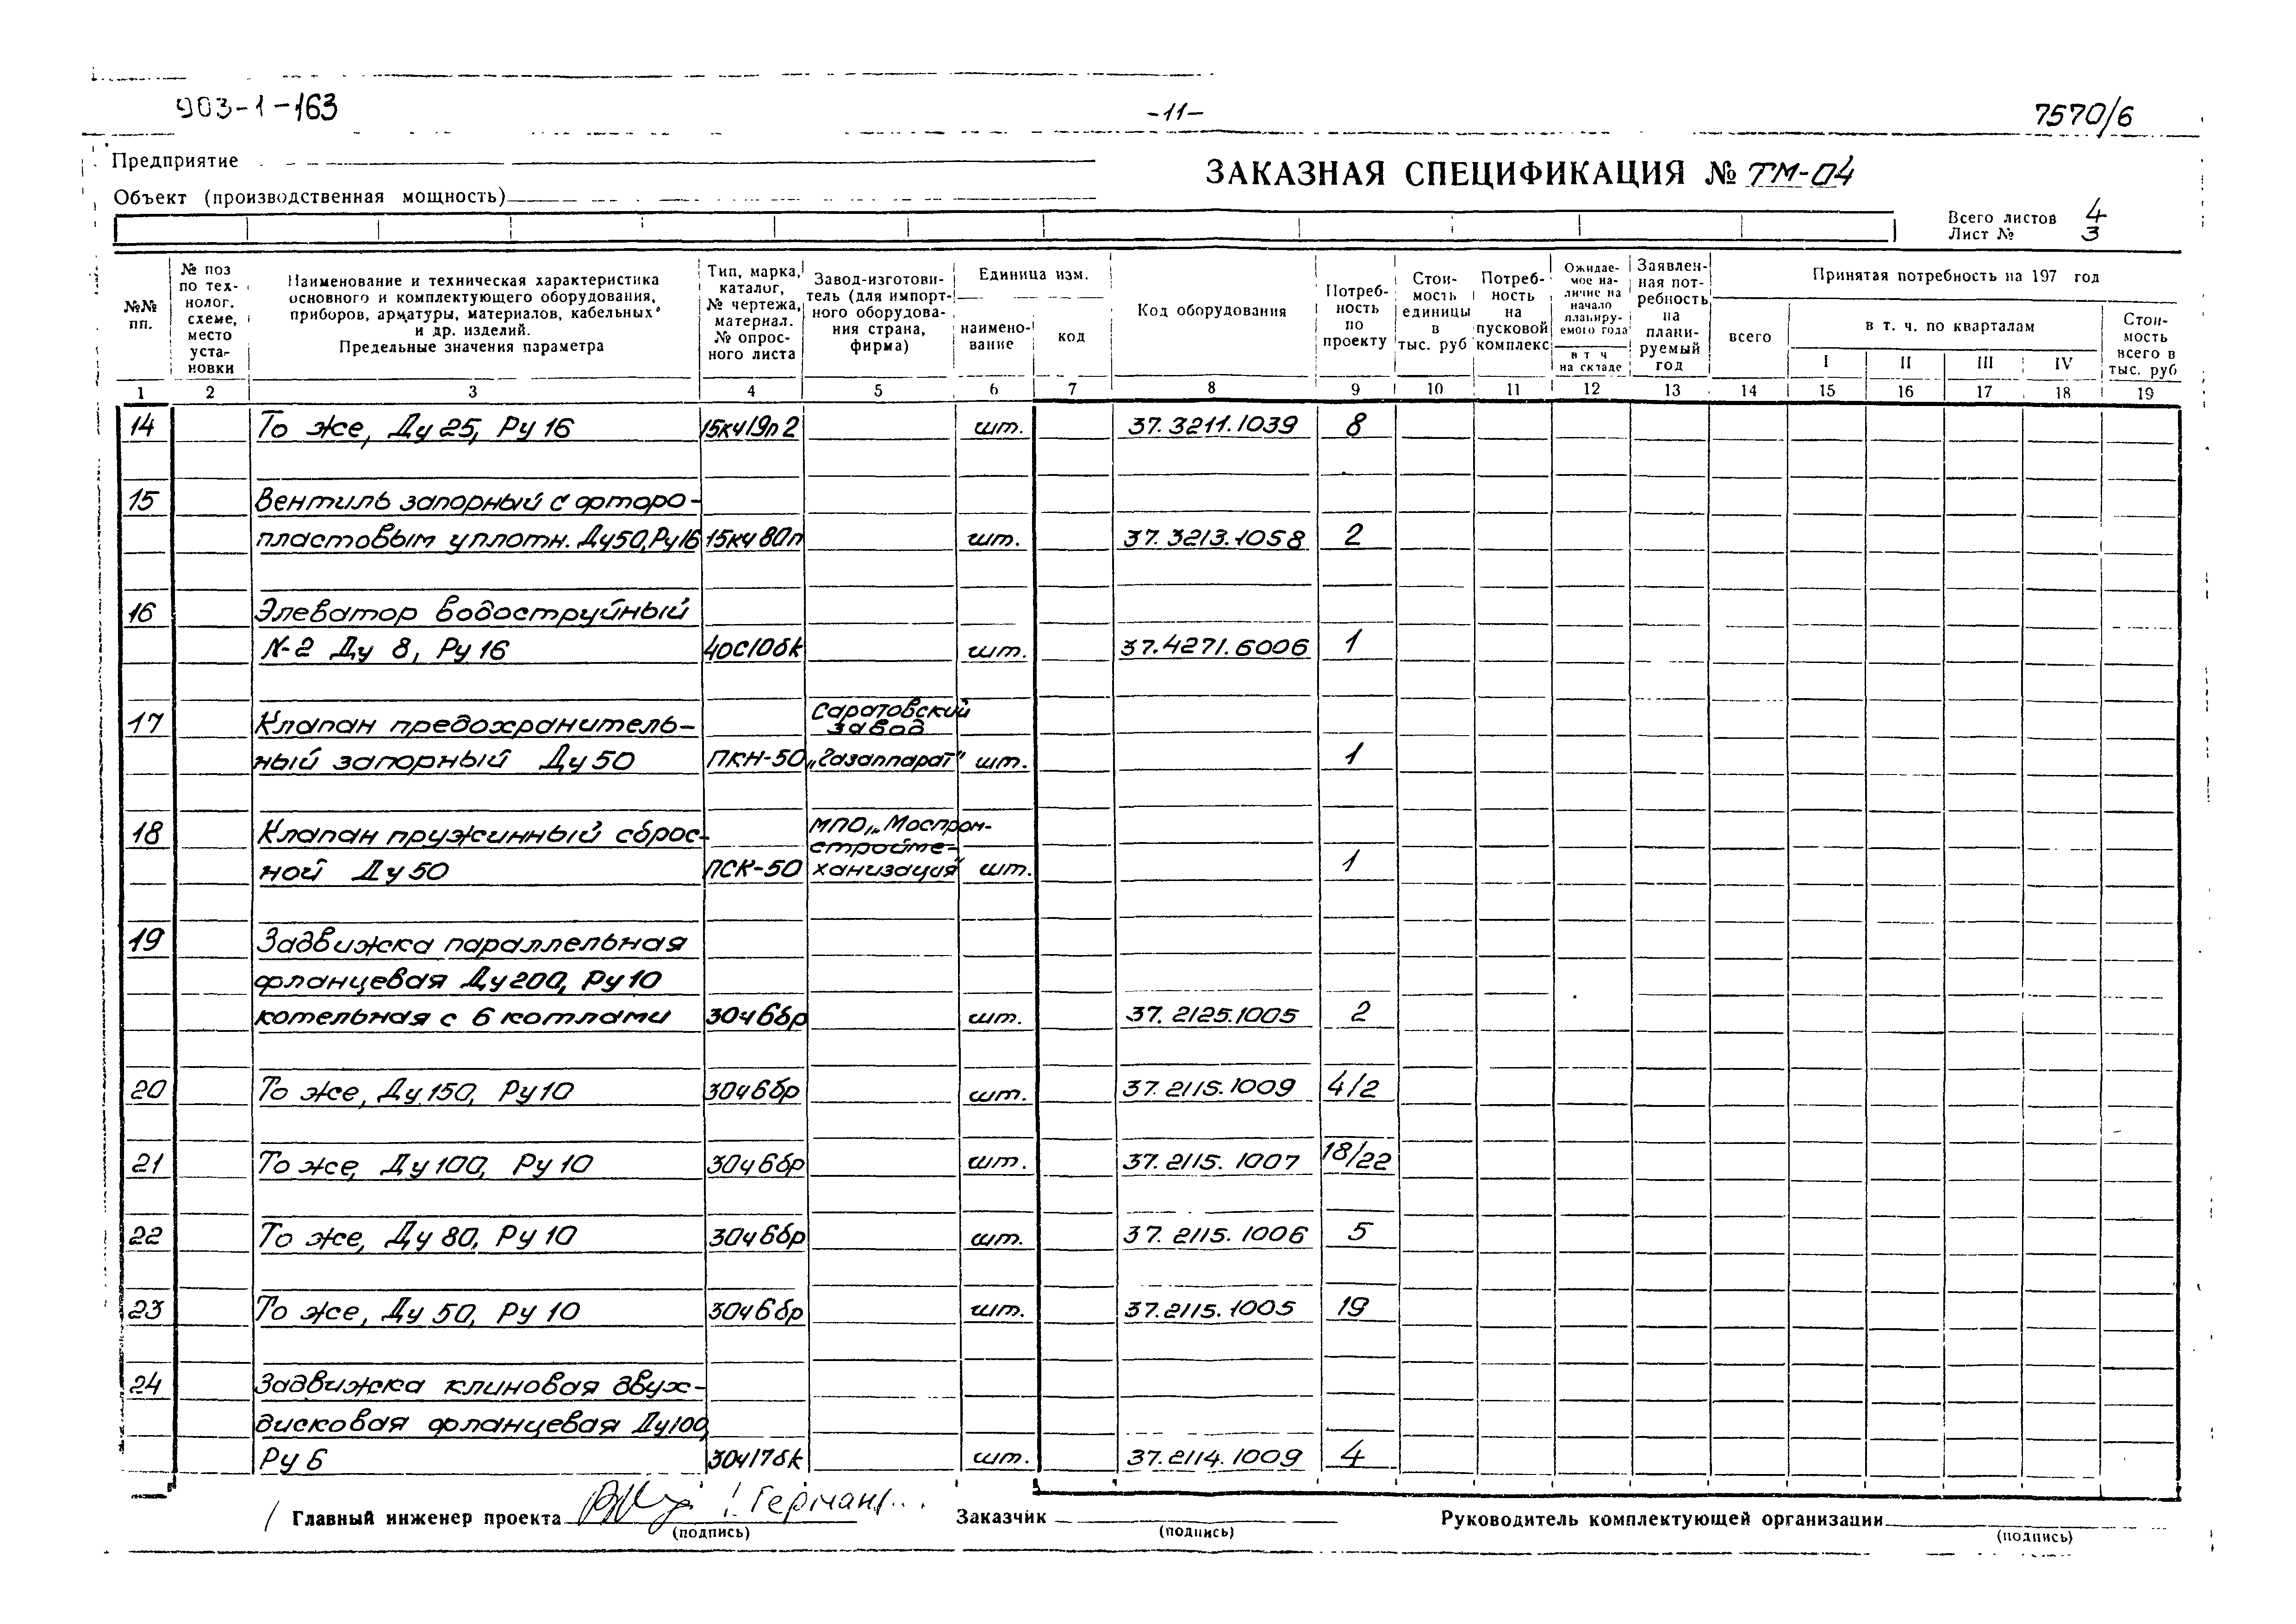 903-1-163
-11-
7570/6
Предприятие
ЗАКАЗНАЯ СПЕЦИФИКАЦИЯ № ТМ-04
Объект (производственная мощность)
Всего листов 4
Лист № 3
№№ пп.
№ поз по тех- нолог. схеме, место уста- новки
Наименование и техническая характеристика основного и комплектующего оборудования, приборов, арматуры, материалов, кабельных и др. изделий. Предельные значения параметра
Тип, марка, каталог, № чертежа, материал. № опрос- ного листа
Завод-изготови- тель (для импорт- ного оборудова- ния страна, фирма)
Единица изм.
наимено- вание
код
Код оборудования
Потреб- ность по проекту
Стои- мость единицы в тыс. руб
Потреб- ность на пусковой комплекс
Ожидае- мое на- личие на начало планиру- емого года
в т ч на складе
Заявлен- ная пот- ребность на плани- руемый год
Принятая потребность на 197 год
всего
в т. ч. по кварталам
I II III IV
Стои- мость всего в тыс. руб
1 2 3 4 5 6 7 8 9 10 11 12 13 14 15 16 17 18 19
14 То же, Ду 25, Ру 16 15кч19п2 шт. 37.3211.1039 8
15 Вентиль запорный с фторо-
пластовым уплотн. Ду50, Ру16 15кч80п шт. 37.3213.1058 2
16 Элеватор водоструйный
N-2 Ду 8, Ру 16 40с10бк шт. 37.4271.6006 1
17 Клапан предохранитель- Саратовский завод
ный запорный Ду 50 ПКН-50 „Газаппарат" шт. 1
18 Клапан пружинный сброс- МПО „Моспром- стройме-
ной Ду 50 ПСК-50 ханизация" шт. 1
19 Задвижка параллельная
фланцевая Ду 200, Ру 10
котельная с 6 котлами 30ч6бр шт. 37.2125.1005 2
20 То же, Ду 150, Ру 10 30ч6бр шт. 37.2115.1009 4/2
21 То же, Ду 100, Ру 10 30ч6бр шт. 37.2115.1007 18/22
22 То же, Ду 80, Ру 10 30ч6бр шт. 37.2115.1006 5
23 То же, Ду 50, Ру 10 30ч6бр шт. 37.2115.1005 19
24 Задвижка клиновая двух-
дисковая фланцевая Ду100,
Ру 6 30ч17бк шт. 37.2114.1009 4
Главный инженер проекта
(подпись)
Заказчик
(подпись)
Руководитель комплектующей организации
(подпись)